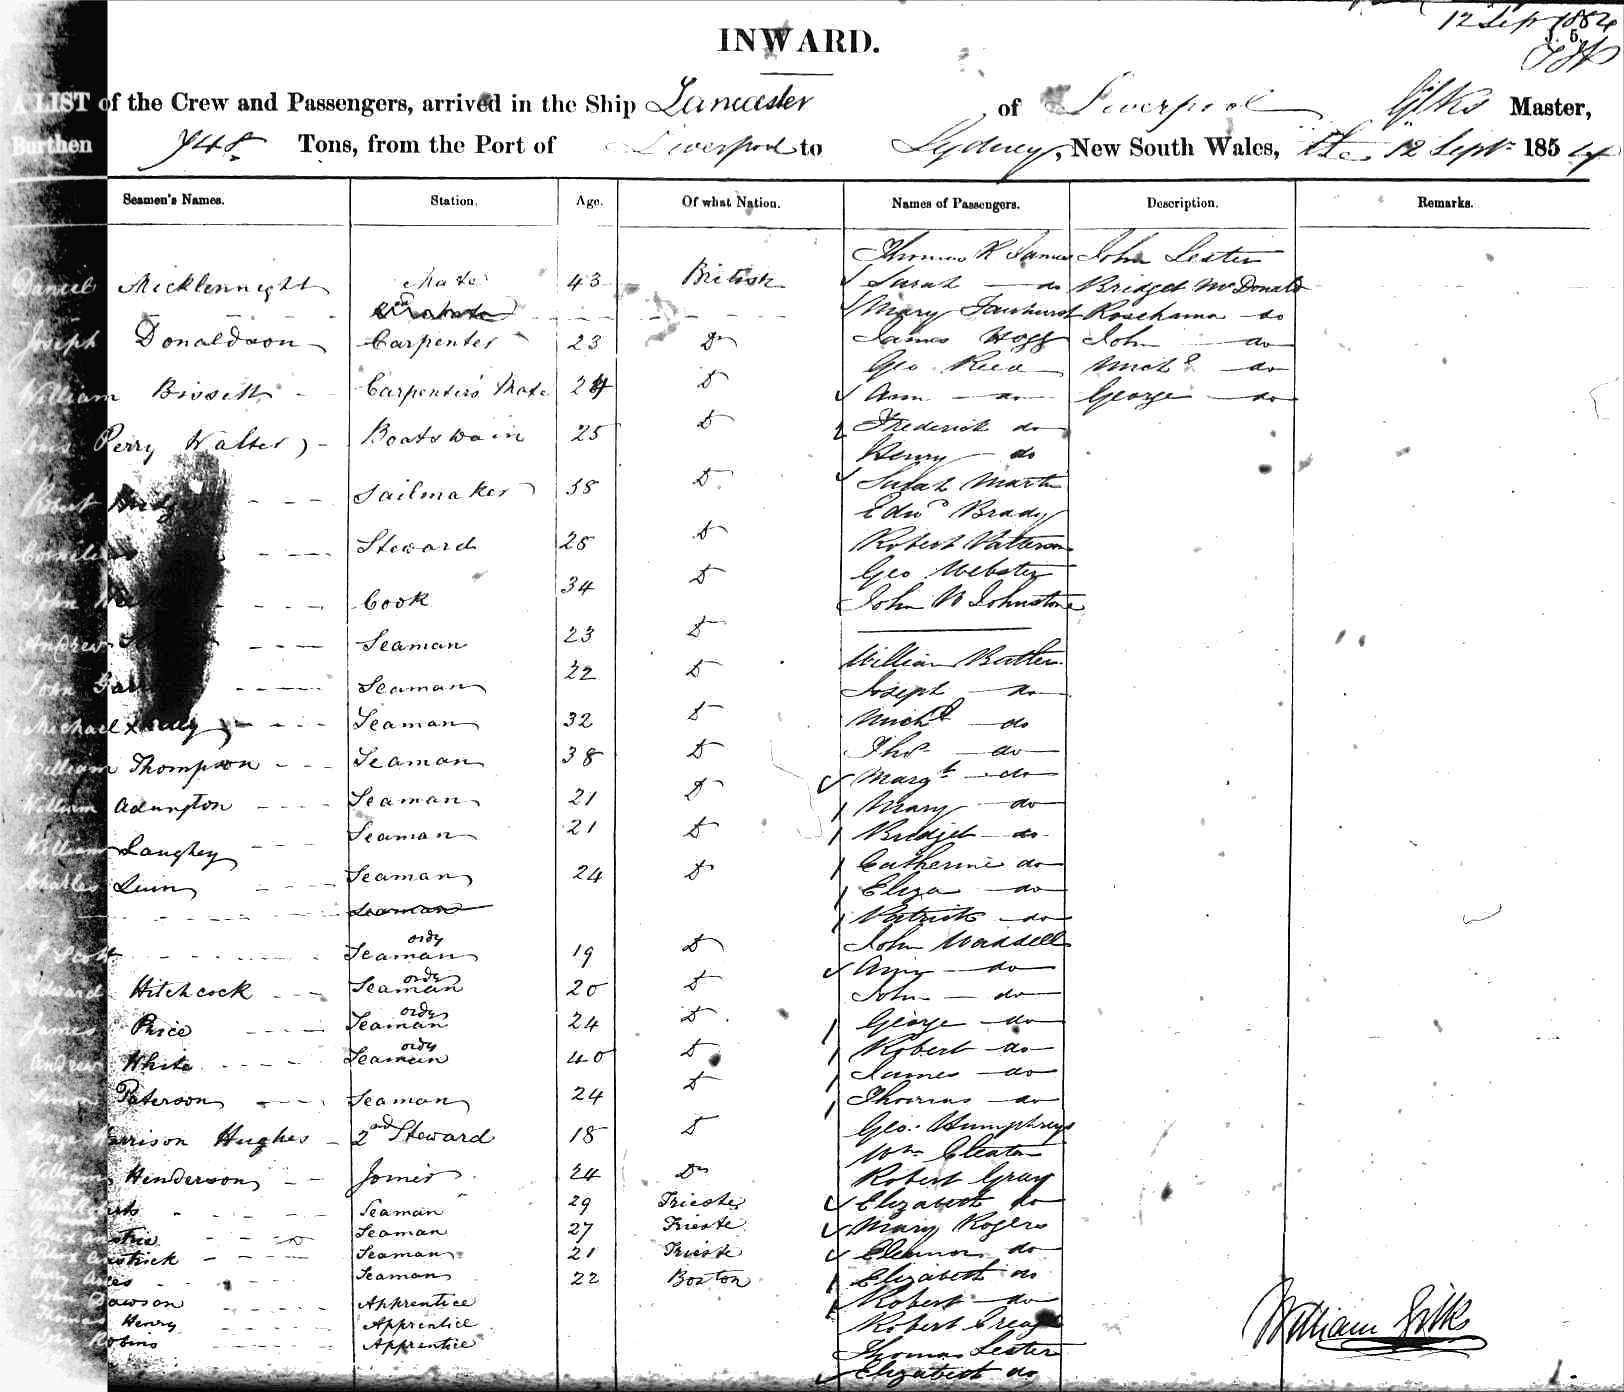 12 Sep 1854
J. 5.
INWARD.
A LIST of the Crew and Passengers, arrived in the Ship Lancaster of Liverpool Gilks Master,
Burthen 748 Tons, from the Port of Liverpool to Sydney, New South Wales, the 12 Sept 1854
Seamen's Names. Station. Age. Of what Nation. Names of Passengers. Description. Remarks.
Daniel Micklennight Mate 43 British
Joseph Donaldson Carpenter 23 Do
William Bissett Carpenter's Mate 24 Do
Perry Walter Boatswain 25 Do
Robert Sailmaker 38 Do
Steward 28 Do
John Cook 34 Do
Andrew Seaman 23 Do
John Seaman 22 Do
Michael Seaman 32 Do
William Thompson Seaman 38 Do
William Adington Seaman 21 Do
William Laughey Seaman 21 Do
Charles Quin Seaman 24 Do
Seaman
J Scott ordy Seaman 19 Do
Edward Hitchcock ordy Seaman 20 Do
James Price ordy Seaman 24 Do
Andrew White ordy Seaman 40 Do
Simon Paterson Seaman 24 Do
George Harrison Hughes 2nd Steward 18 Do
William Henderson Joiner 24 Do
Seaman 29 Trieste
Seaman 27 Trieste
Seaman 21 Trieste
Seaman 22 Boston
John Dawson Apprentice
Thomas Henry Apprentice
John Robins Apprentice
Thomas R James
Sarah do
Mary Fairhurst
James Hogg
Geo Reed
Ann do
Frederick do
Henry do
Sarah Martin
Edwd Brady
Robert Patterson
Geo Webster
John W Johnstone
William Butler
Joseph do
Michl do
Thos do
Margt do
Mary do
Bridget do
Catherine do
Eliza do
Patrick do
John Waddell
Ann do
John do
George do
Robert do
James do
Thomas do
Geo. Humphreys
Wm Cleaton
Robert Gray
Elizabeth do
Mary Rogers
Eleanor do
Elizabeth do
Robert do
Robert
Thomas Lester
Elizabeth do
John Lester
Bridget McDonald
Rosehanna do
John do
Michl do
George do
William Gilks
1.